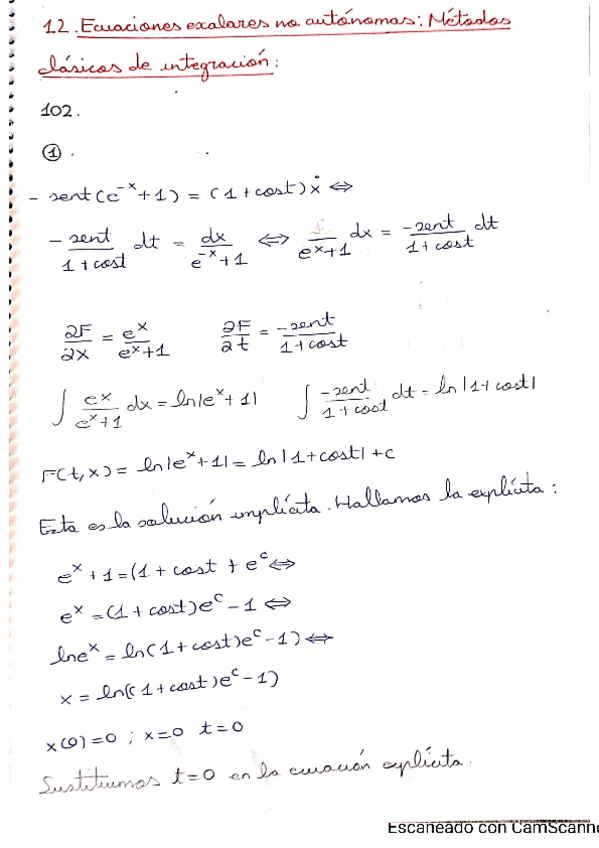 12. Ecuaciones escalares no autónomas: Métodos
clásicos de integración:
102.
① .
- sent(e^-x + 1) = (1 + cost) ẋ ⇔
- sent / 1 + cost dt = dx / e^-x + 1 ⇔ / e^x + 1 dx = - sent / 1 + cost dt
∂F / ∂x = e^x / e^x + 1    ∂F / ∂t = - sent / 1 + cost
∫ e^x / e^x + 1 dx = ln|e^x + 1|    ∫ - sent / 1 + cost dt = ln|1 + cost|
F(t,x) = ln|e^x + 1| = ln|1 + cost| + c
Esta es la solución implícita. Hallamos la explícita:
e^x + 1 = (1 + cost + e^c ⇔
e^x = (1 + cost)e^c - 1 ⇔
lne^x = ln(1 + cost)e^c - 1) ⇔
x = ln((1 + cost)e^c - 1)
x(0) = 0 ; x = 0 t = 0
Sustituimos t = 0 en la ecuación explícita.
Escaneado con CamScanne